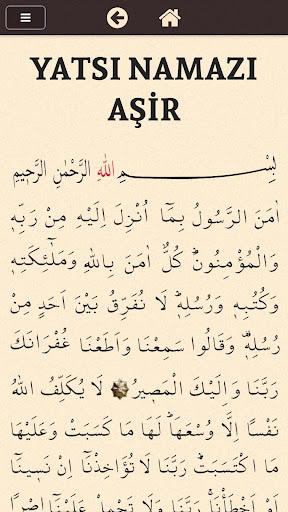 YATSI NAMAZI
AŞİR
بِسْمِ اللهِ الرَّحْمٰنِ الرَّح۪يمِ
اٰمَنَ الرَّسُولُ بِمَٓا اُنْزِلَ اِلَيْهِ مِنْ رَبِّه۪
وَالْمُؤْمِنُونَۜ كُلٌّ اٰمَنَ بِاللهِ وَمَلٰٓئِكَتِه۪
وَكُتُبِه۪ وَرُسُلِه۪ۜ لَا نُفَرِّقُ بَيْنَ اَحَدٍ مِنْ
رُسُلِه۪۠ وَقَالُوا سَمِعْنَا وَاَطَعْنَا غُفْرَانَكَ
رَبَّنَا وَاِلَيْكَ الْمَص۪يرُ لَا يُكَلِّفُ اللهُ
نَفْسًا اِلَّا وُسْعَهَاۜ لَهَا مَا كَسَبَتْ وَعَلَيْهَا
مَا اكْتَسَبَتْۜ رَبَّنَا لَا تُؤَاخِذْنَٓا اِنْ نَس۪ينَٓا
اَوْ اَخْطَأْنَاۚ رَبَّنَا وَلَا تَحْمِلْ عَلَيْنَٓا اِصْرًا